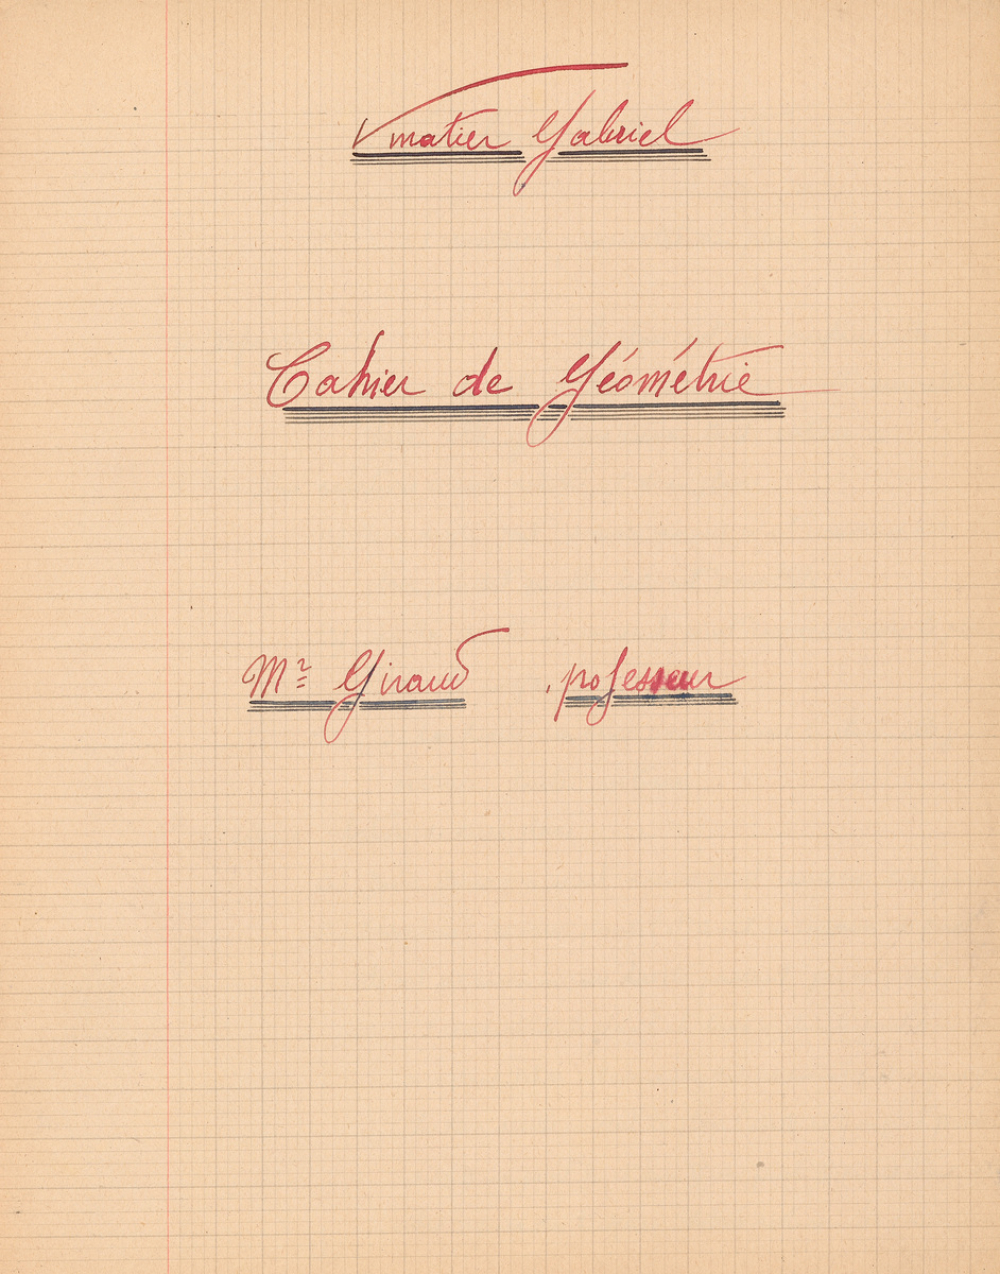 Gabriel
Cahier de Géométrie
Mr Giraud professeur